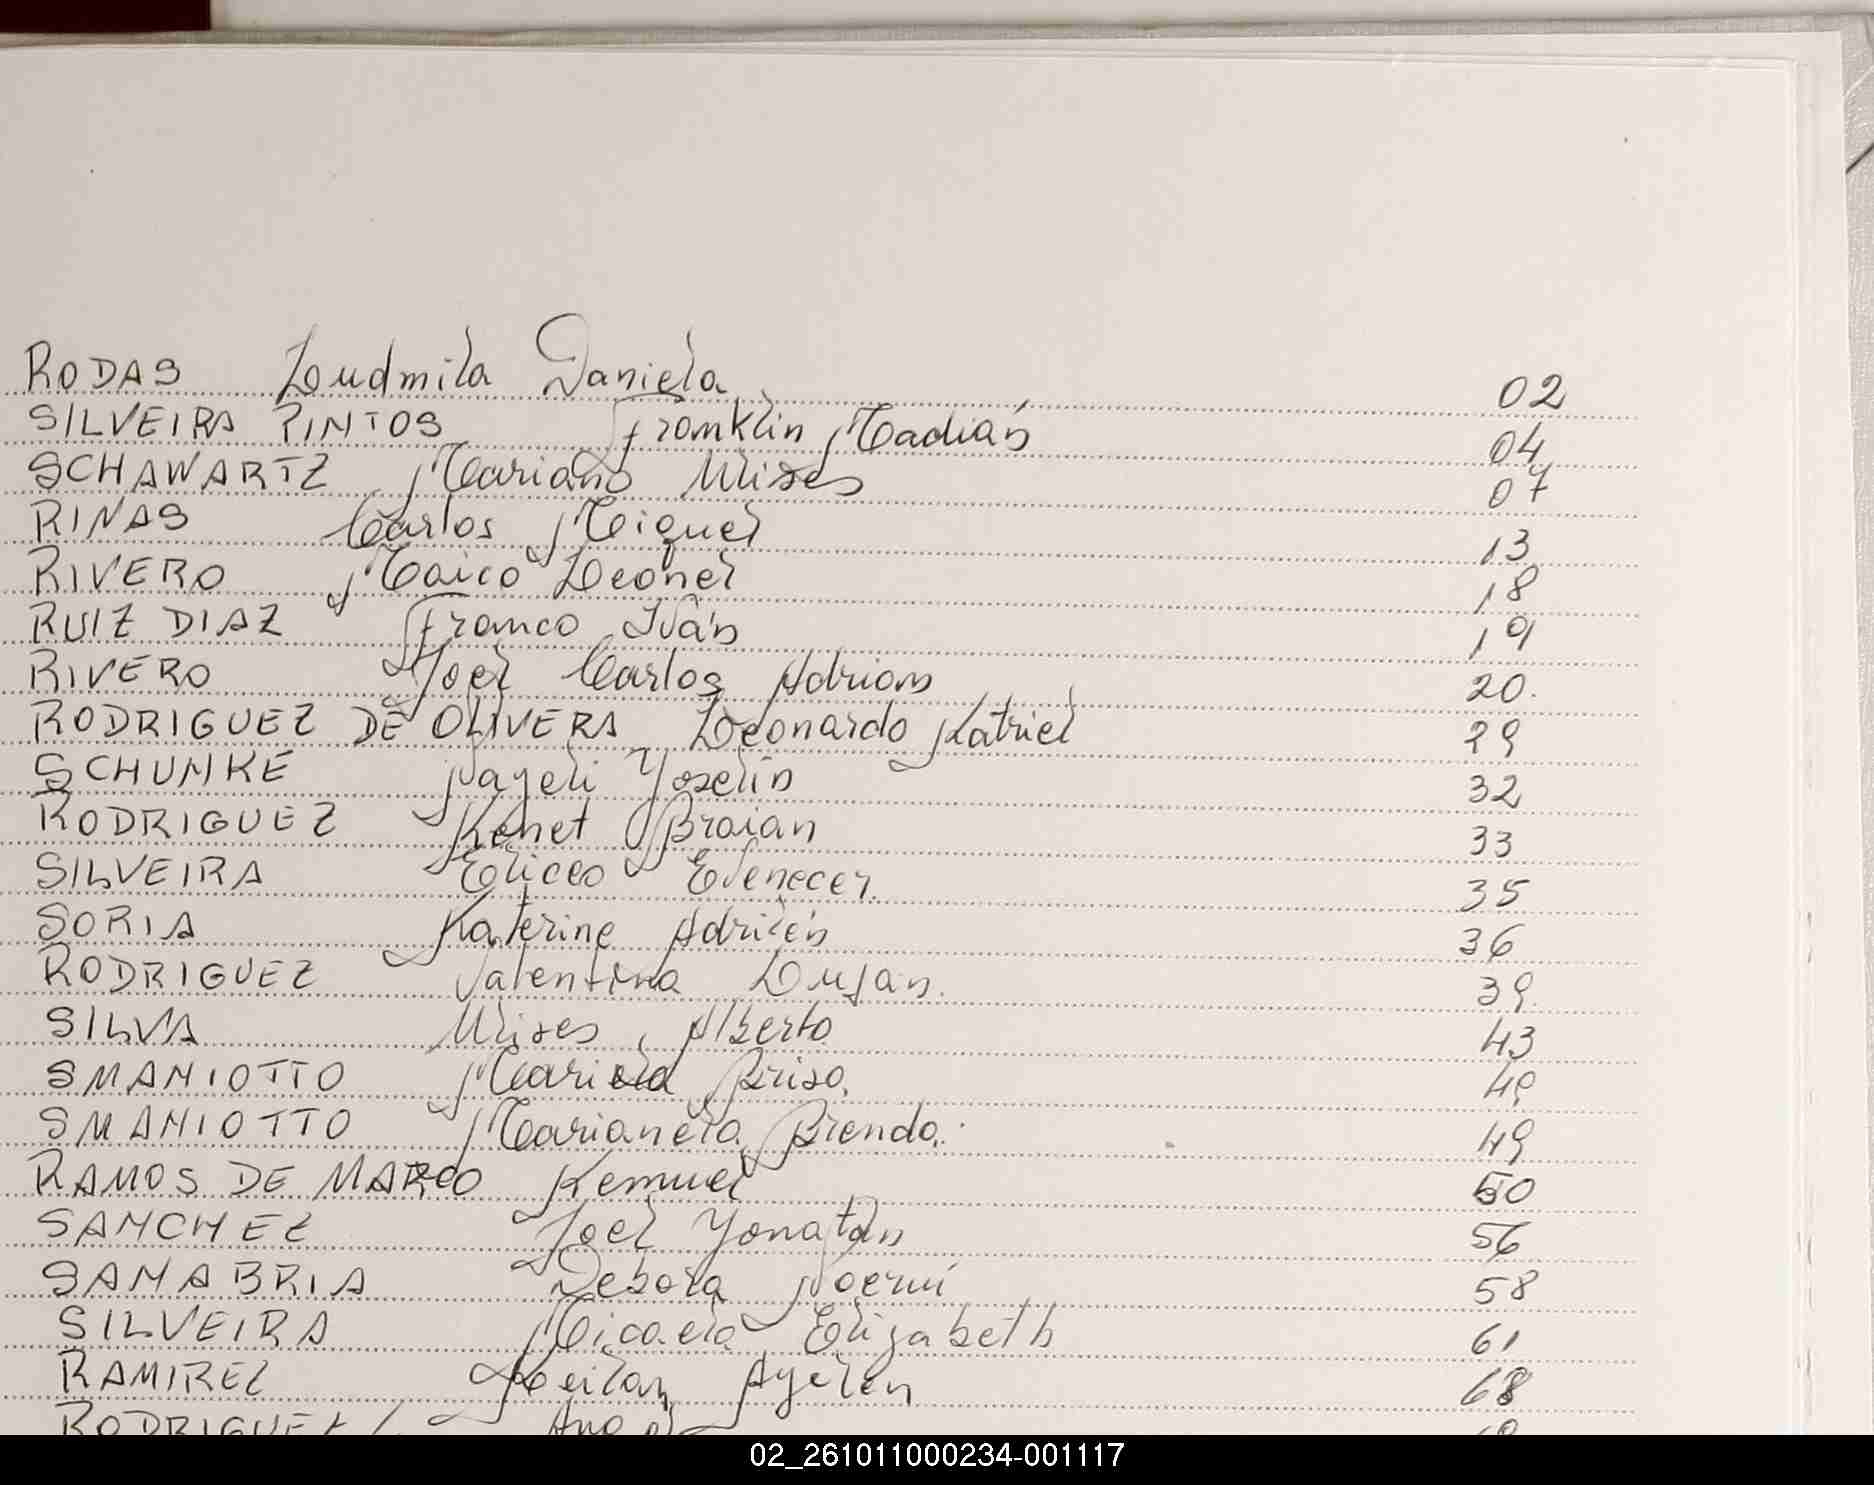 RODAS Ludmila Daniela 02
SILVEIRA PINTOS Franklin Madián 04
SCHAWARTZ Mariano Ulises 07
RINAS Carlos Miguel 13
RIVERO Maico Leonel 18
RUIZ DIAZ Franco Iván 19
RIVERO Joel Carlos Adrian 20
RODRIGUEZ DE OLIVERA Leonardo Katriel 29
SCHUNKE Nayeli Yoselin 32
RODRIGUEZ Kenet Braian 33
SILVEIRA Eliceo Evenecer 35
SORIA Katerine Adrilén 36
RODRIGUEZ Valentina Luján 39
SILVA Ulises Alberto 43
SMANIOTTO Brisa 49
SMANIOTTO Marianela Brenda 49
RAMOS DE MARCO Kemuel 50
SANCHEZ Joel Yonatan 56
SANABRIA Debora Noemí 58
SILVEIRA Micaela Elizabeth 61
RAMIREZ Ayelén 68
RODRIGUEZ
02_261011000234-001117